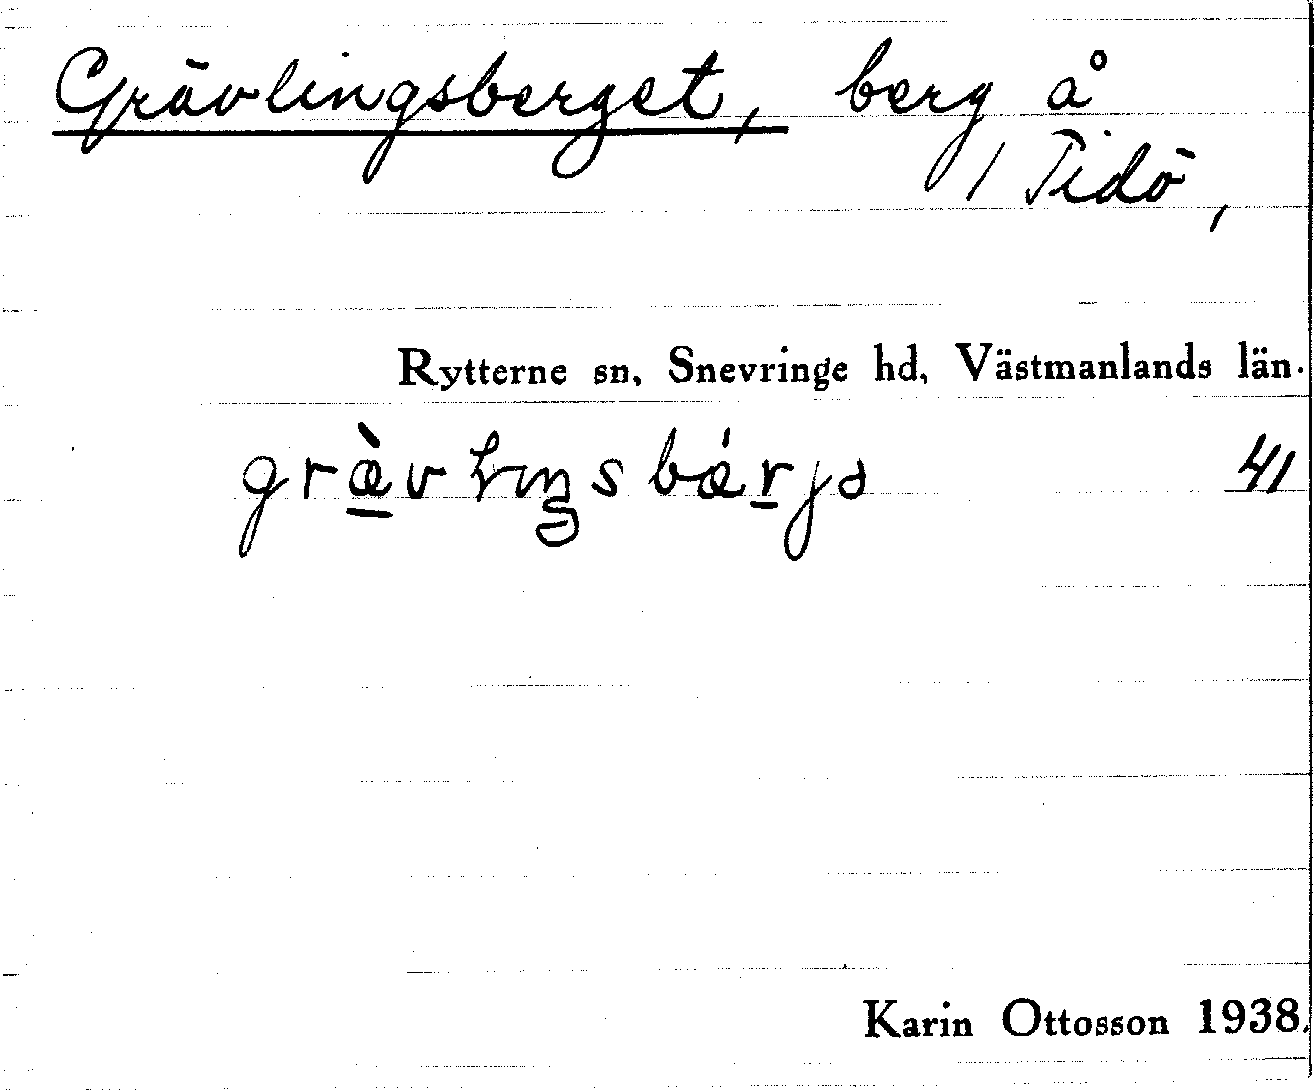 Grävlingsberget, berg å
1 Tidö,
Rytterne sn, Snevringe hd, Västmanlands län.
41
Karin Ottosson 1938.